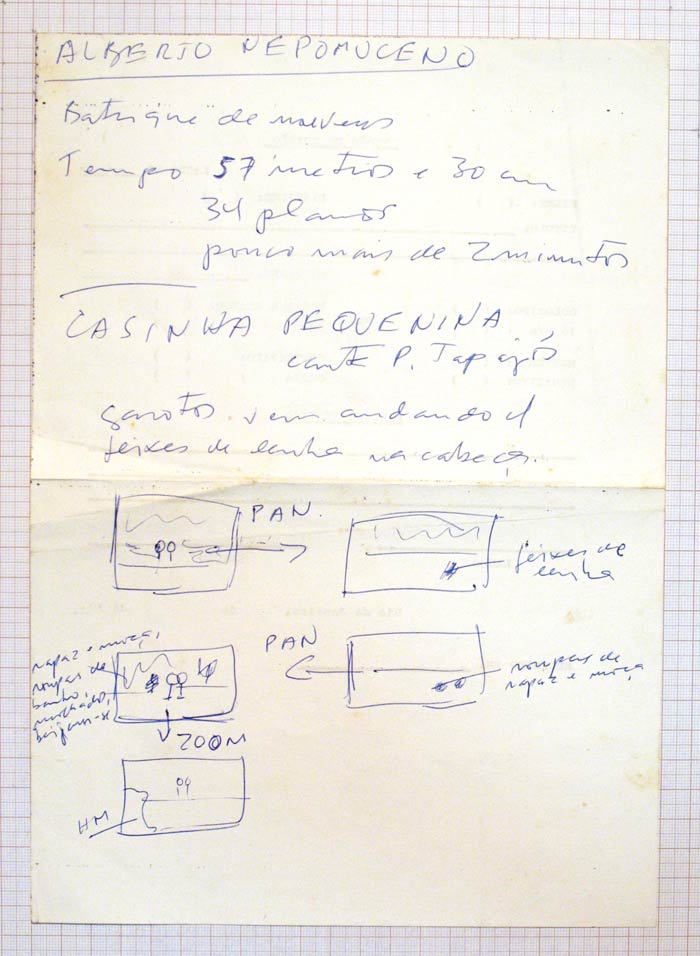 ALBERTO NEPOMUCENO
Batuque de
Tempo 57 metros e 30 cm
34 planos
pouco mais de 2 minutos
CASINHA PEQUENINA,
canta P. Tapajós
garotos vem andando c/
feixes de lenha na cabeça.
PAN.
feixes de
lenha
PAN
rapaz e moça,
roupas de
banho,
molhado,
beijam-se
roupas de
rapaz e moça
ZOOM
HM